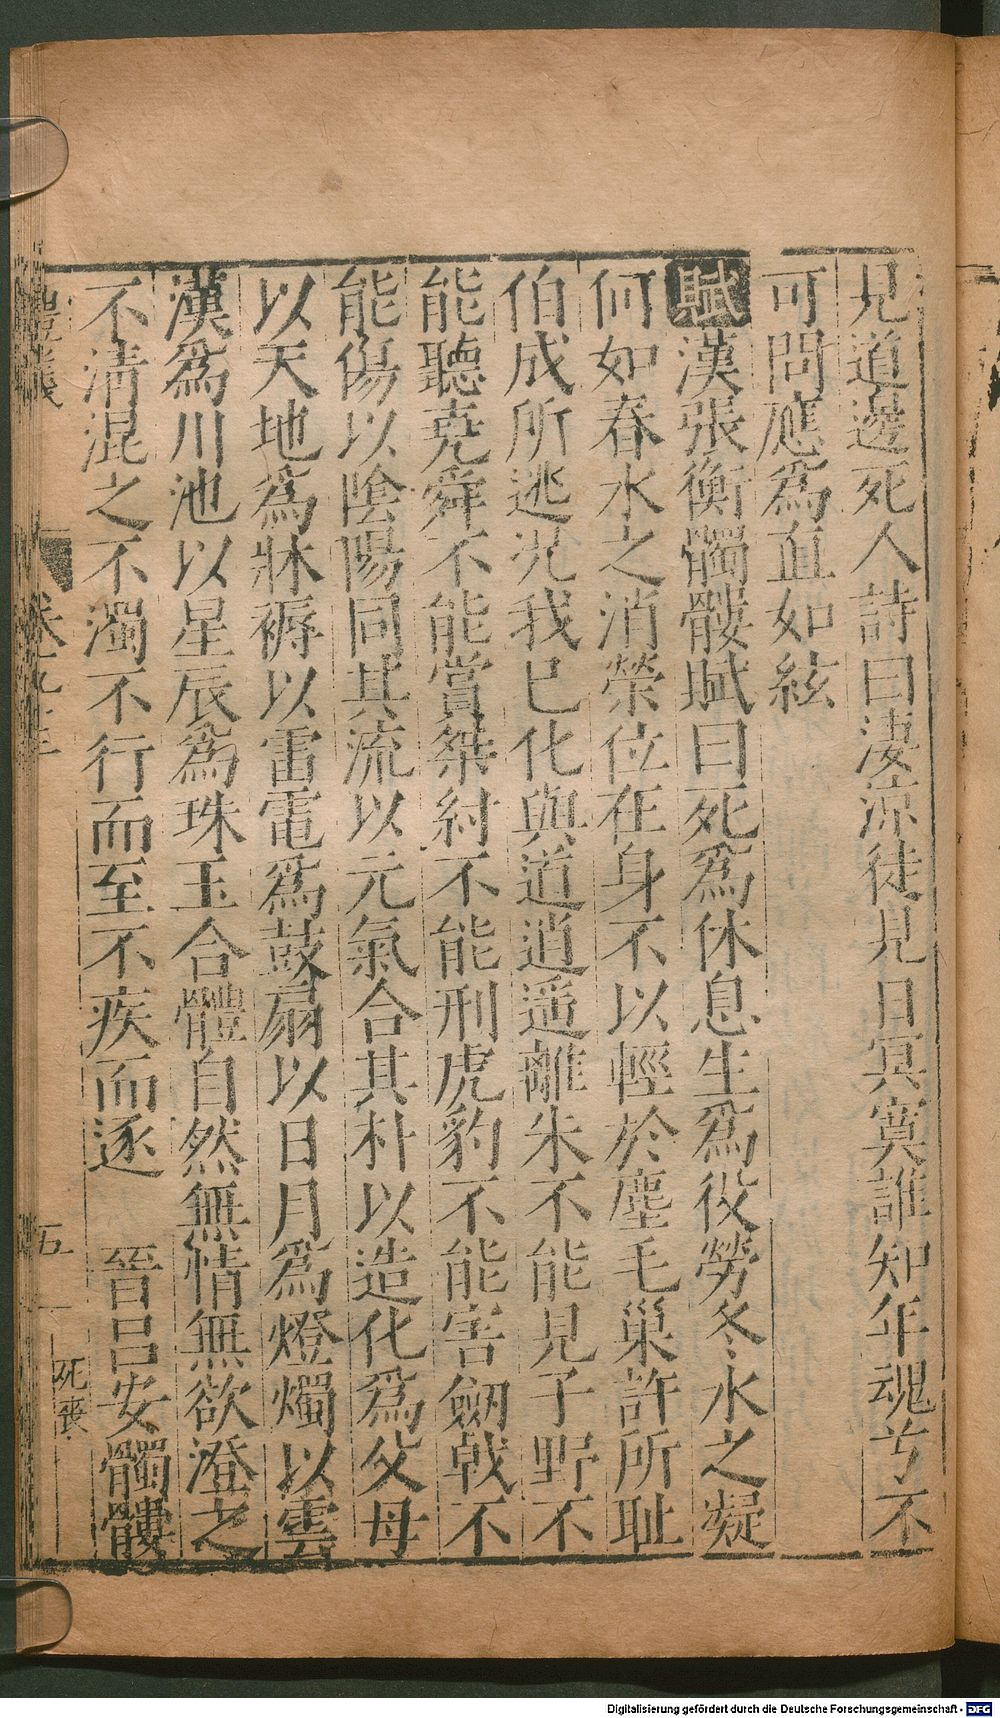 見道邊死人詩曰淒涼徒見日冥寞誰知年魂兮不
可問應爲直如絃
賦漢張衡髑髏賦曰死爲休息生爲役勞冬水之凝
何如春水之消榮位在身不以輕於塵毛巢許所耻
伯成所逃况我已化與道逍遥離朱不能見子野不
能聽堯舜不能賞桀紂不能刑虎豹不能害劒戟不
能傷以陰陽同其流以元氣合其朴以造化爲父母
以天地爲牀褥以雷電爲鼓扇以日月爲燈燭以雲
漢爲川池以星辰爲珠玉合體自然無情無欲澄之
不淸混之不濁不行而至不疾而逐　晉呂安髑髏
五
死喪
Digitalisierung gefördert durch die Deutsche Forschungsgemeinschaft - DFG